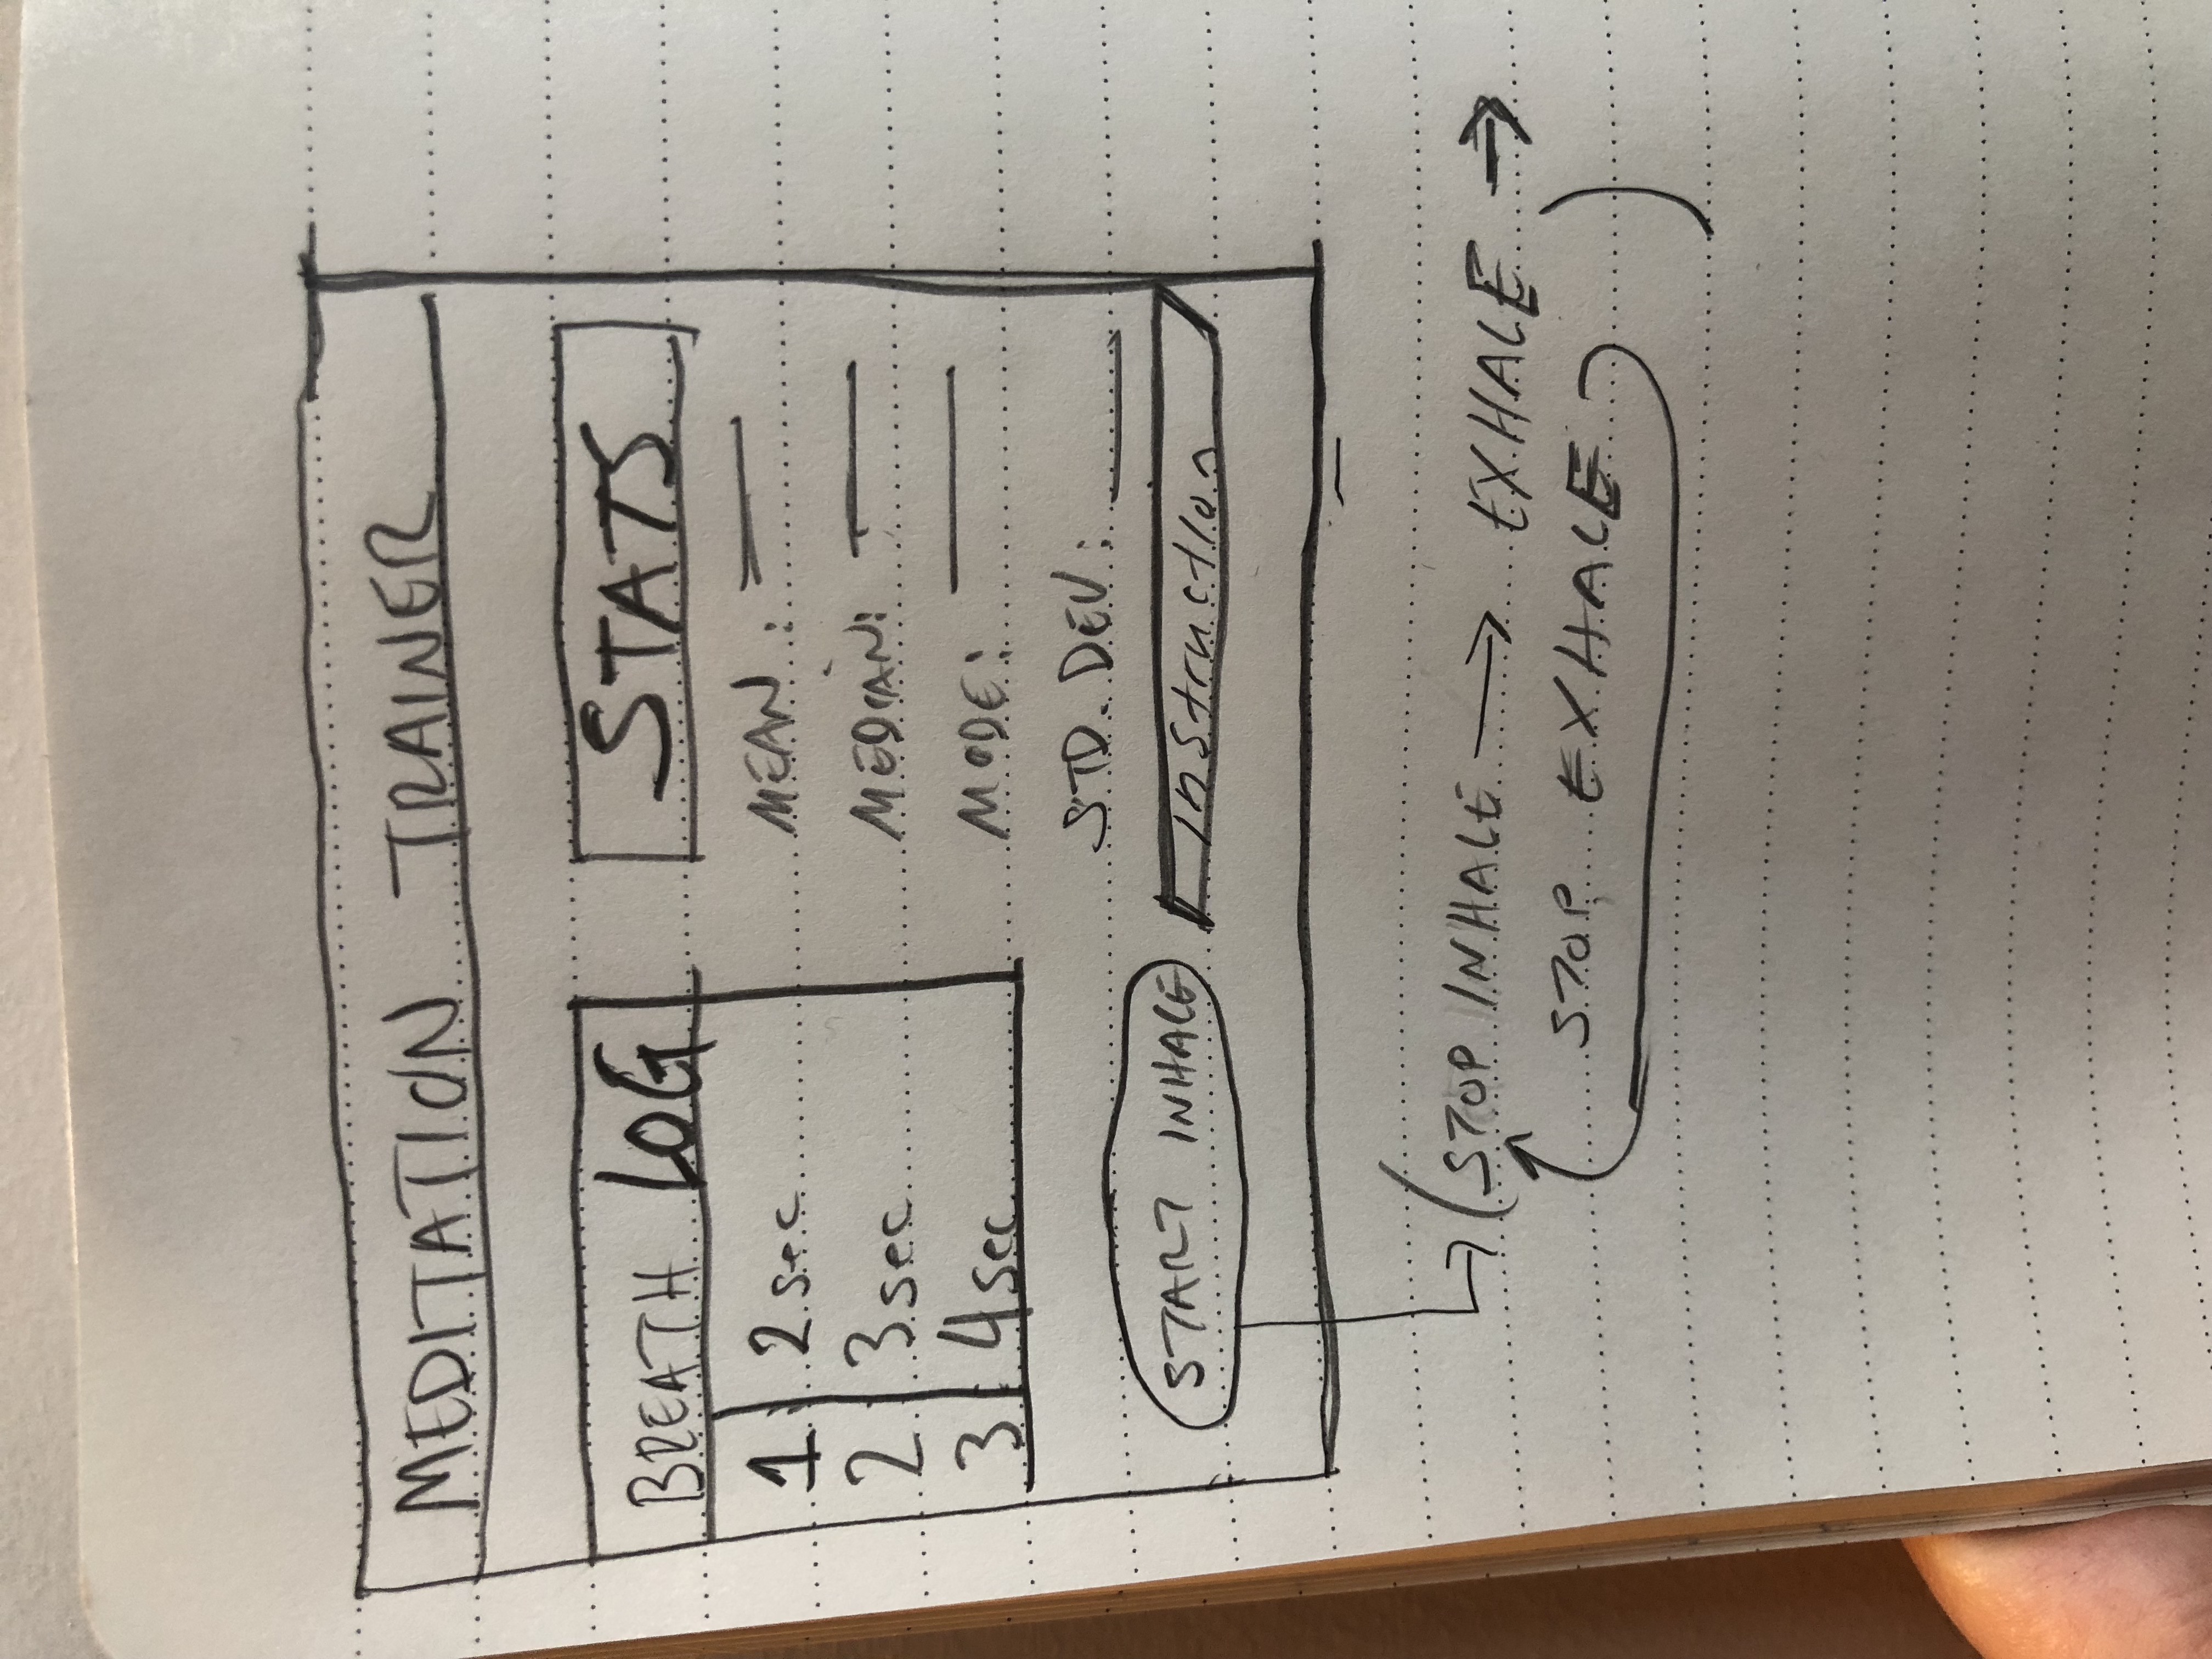 MEDITATION TRAINER
BREATH LOG
1 2 sec
2 3 sec
3 4 sec
STATS
MEAN :
MEDIAN:
MODE:
STD. DEV :
START INHALE
Instruction
STOP INHALE → EXHALE →
STOP EXHALE